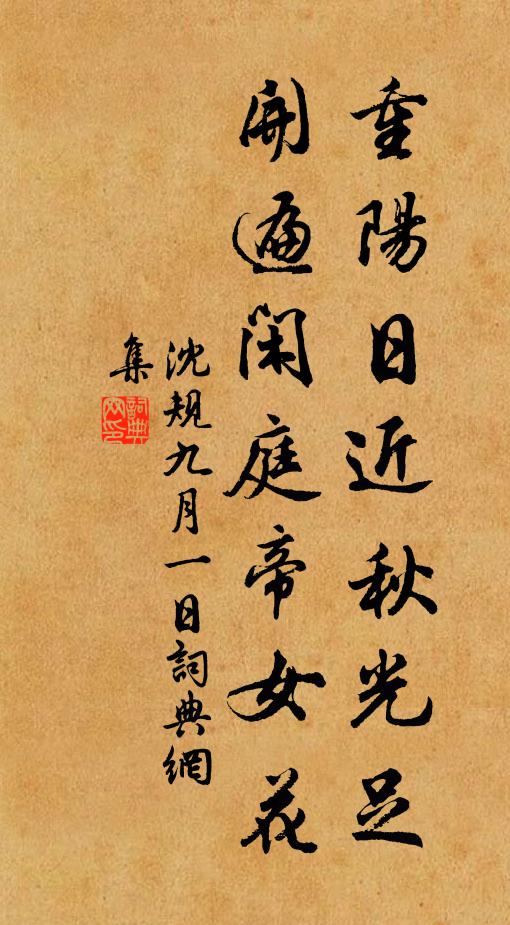 重陽日近秋光足
開遍閑庭帝女花
沈規九月一日詞典網
集
詞典網印